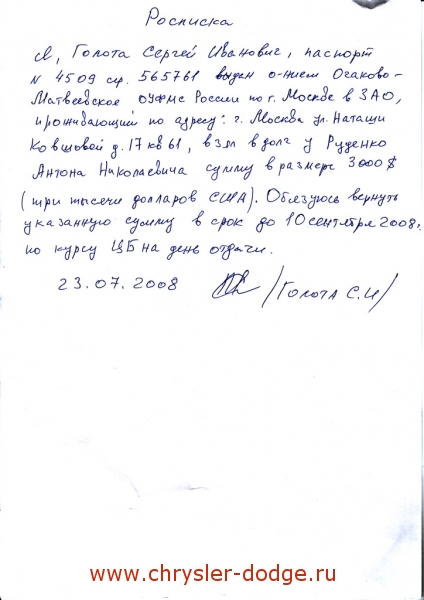 Росписка
Я, Голота Сергей Иванович, паспорт
N 4509 сер. 565761 выдан о-нием Очаково-
Матвеевское ОУФМС России по г. Москве в ЗАО,
проживающий по адресу: г. Москва ул. Наташи
Ковшовой д. 17 кв 61, взял в долг у Руденко
Антона Николаевича сумму в размере 3000$
(три тысячи долларов США). Обязуюсь вернуть
указанную сумму в срок до 10 сентября 2008г
по курсу ЦБ на день отдачи.
23.07.2008 /Голота С.И/
www.chrysler-dodge.ru